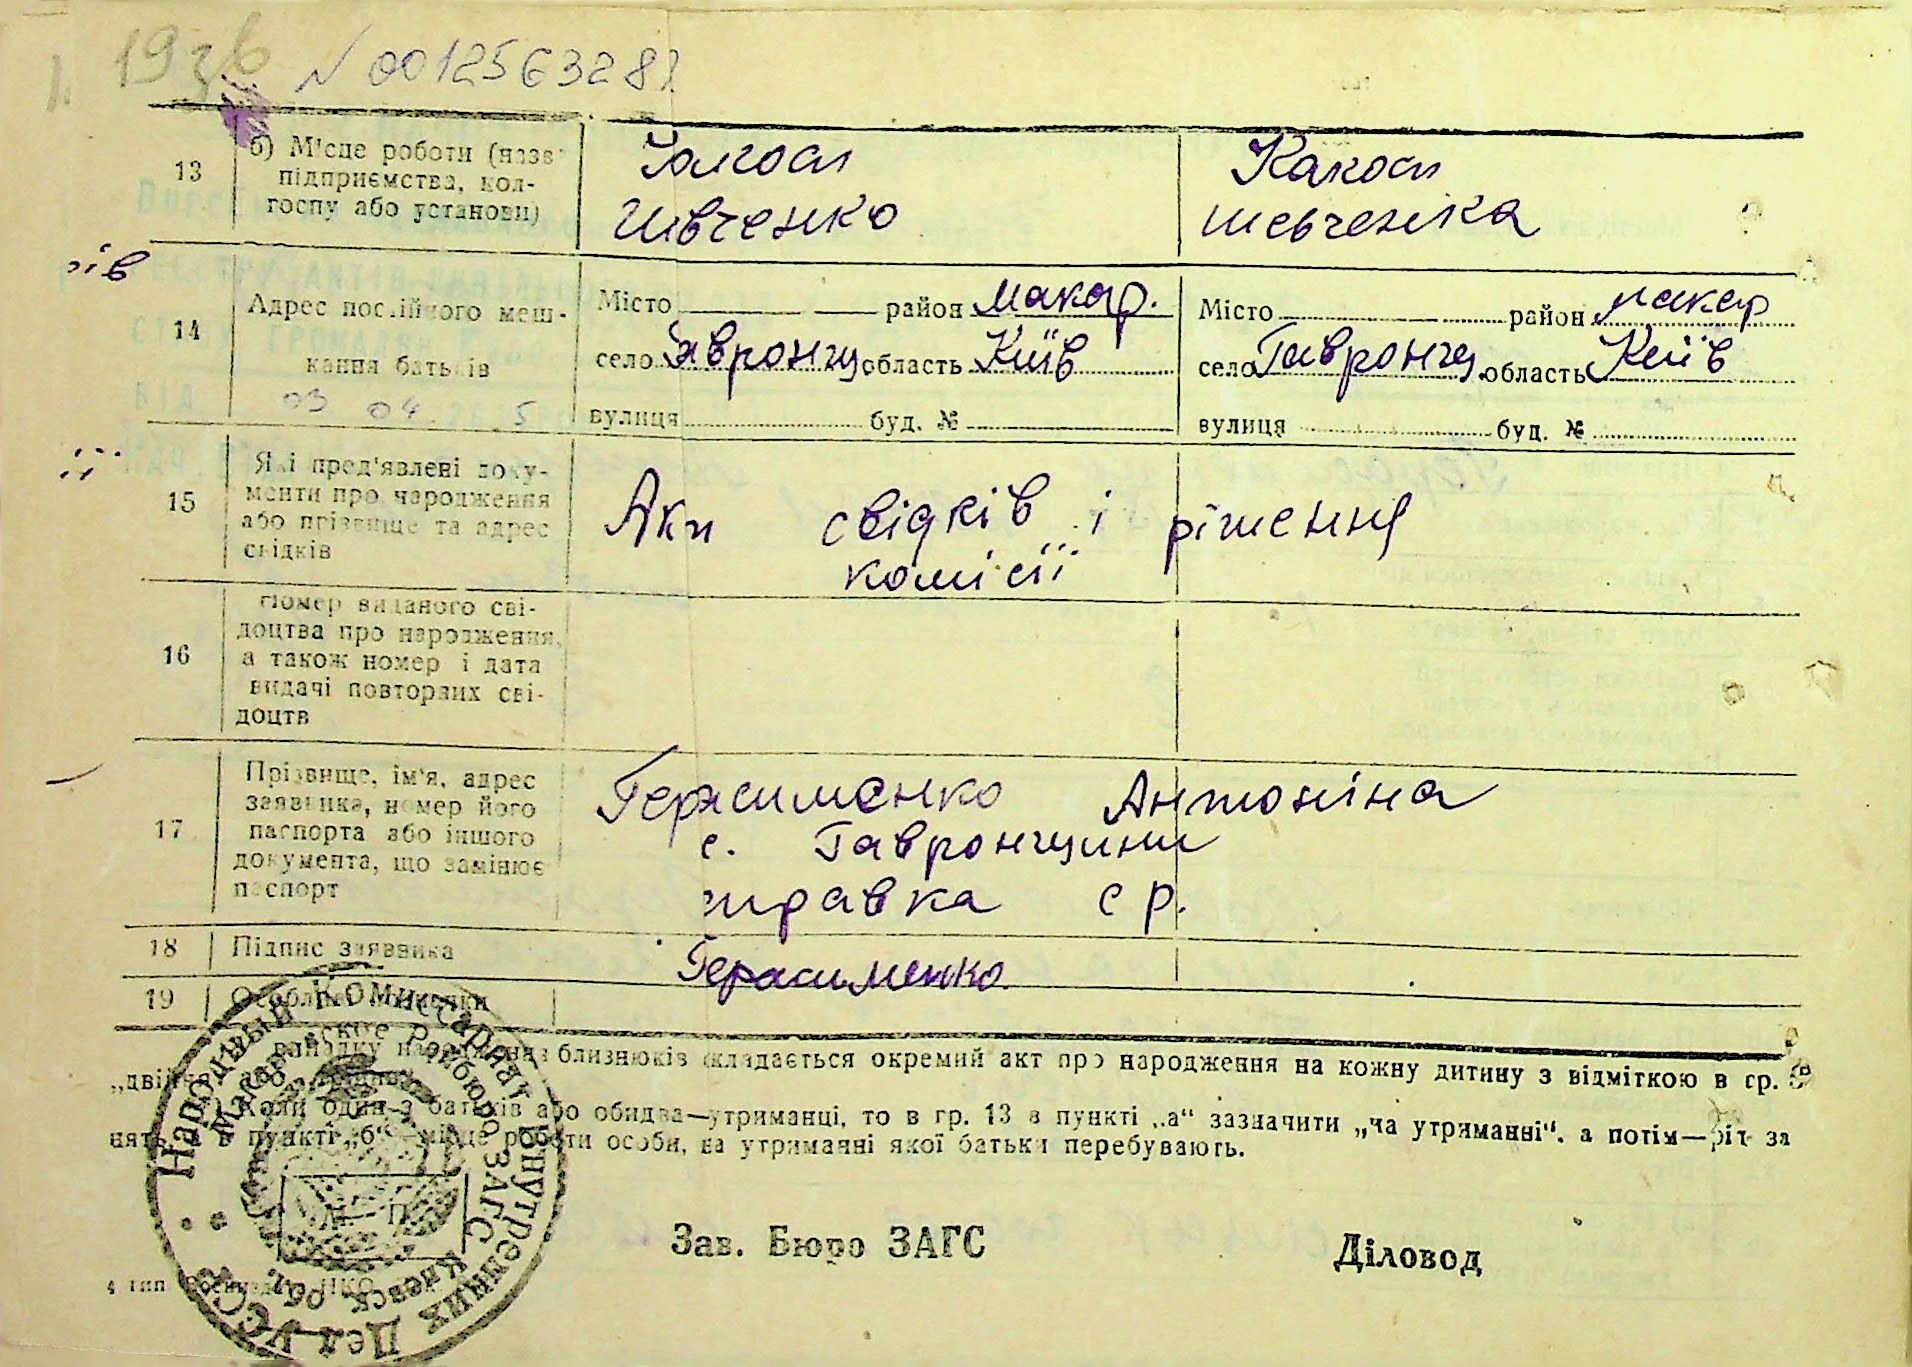 1936 N 0012563281
13
б) Місце роботи (назва
підприємства, кол-
госпу або установи)
Шевченко
Колгосп
Шевченка
14
Адрес постійного меш-
кання батьків
03 04
Місто район Макар.
село Гавронщ область Київ
вулиця буд. №
Місто район Макар
село Гавронщ область Київ
вулиця буд. №
15
Які пред'явлені доку-
менти про народження
або прізвище та адрес
свідків
Акт свідків і рішення
комісії
16
Номер виданого сві-
доцтва про народження,
а також номер і дата
видачі повторних сві-
доцтв
17
Прізвище, ім'я, адрес
заявника, номер його
паспорта або іншого
документа, що замінює
паспорт
Герасименко Антоніна
с. Гавронщини
справка с р.
18 Підпис заявника
Герасименко
19 Особливі
випадку народження близнюків складається окремий акт про народження на кожну дитину з відміткою в гр.
Коли один з батьків або обидва—утриманці, то в гр. 13 в пункті „а“ зазначити „на утриманні“, а потім—рід за
нять, а в пункті „б“ місце роботи особи, на утриманні якої батьки перебувають.
Народный Комиссариат Внутренних Дел УССР
Макаровское Райбюро ЗАГС Киевск. обл.
М. П.
Зав. Бюро ЗАГС
Діловод